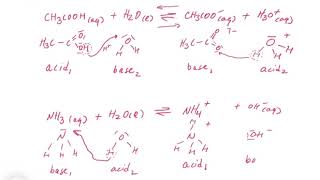 CH₃COOH (aq) + H₂O(ℓ) ⇌ CH₃COO⁻(aq) + H₃O⁺(aq)
H₃C – C O OH H⁺ O H H H₃C – C O O – H O H H +
acid₁ base₂ base₁ acid₂
NH₃ (aq) + H₂O(ℓ) ⇌ NH₄⁺ + OH⁻(aq)
N H H H O H H H N H H H + OH⁻
base₁ acid₂ acid₁ ba